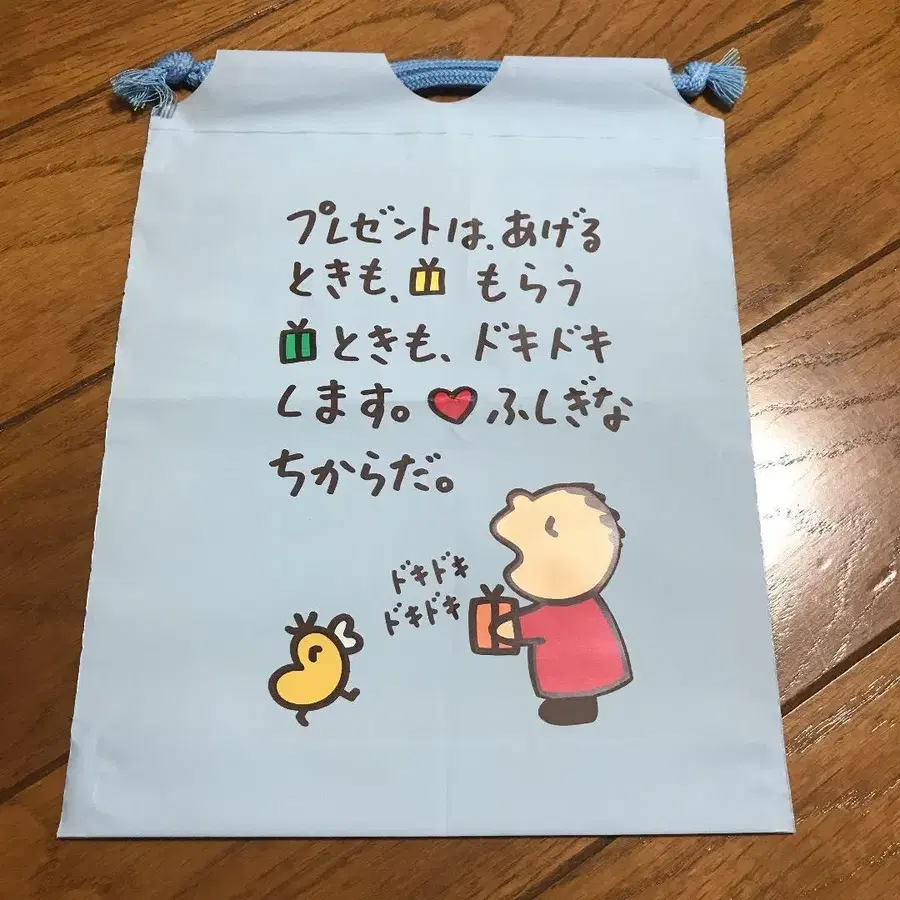 プレゼントは、あげる
ときも、もらう
ときも、ドキドキ
します。ふしぎな
ちからだ。
ドキドキ
ドキドキ